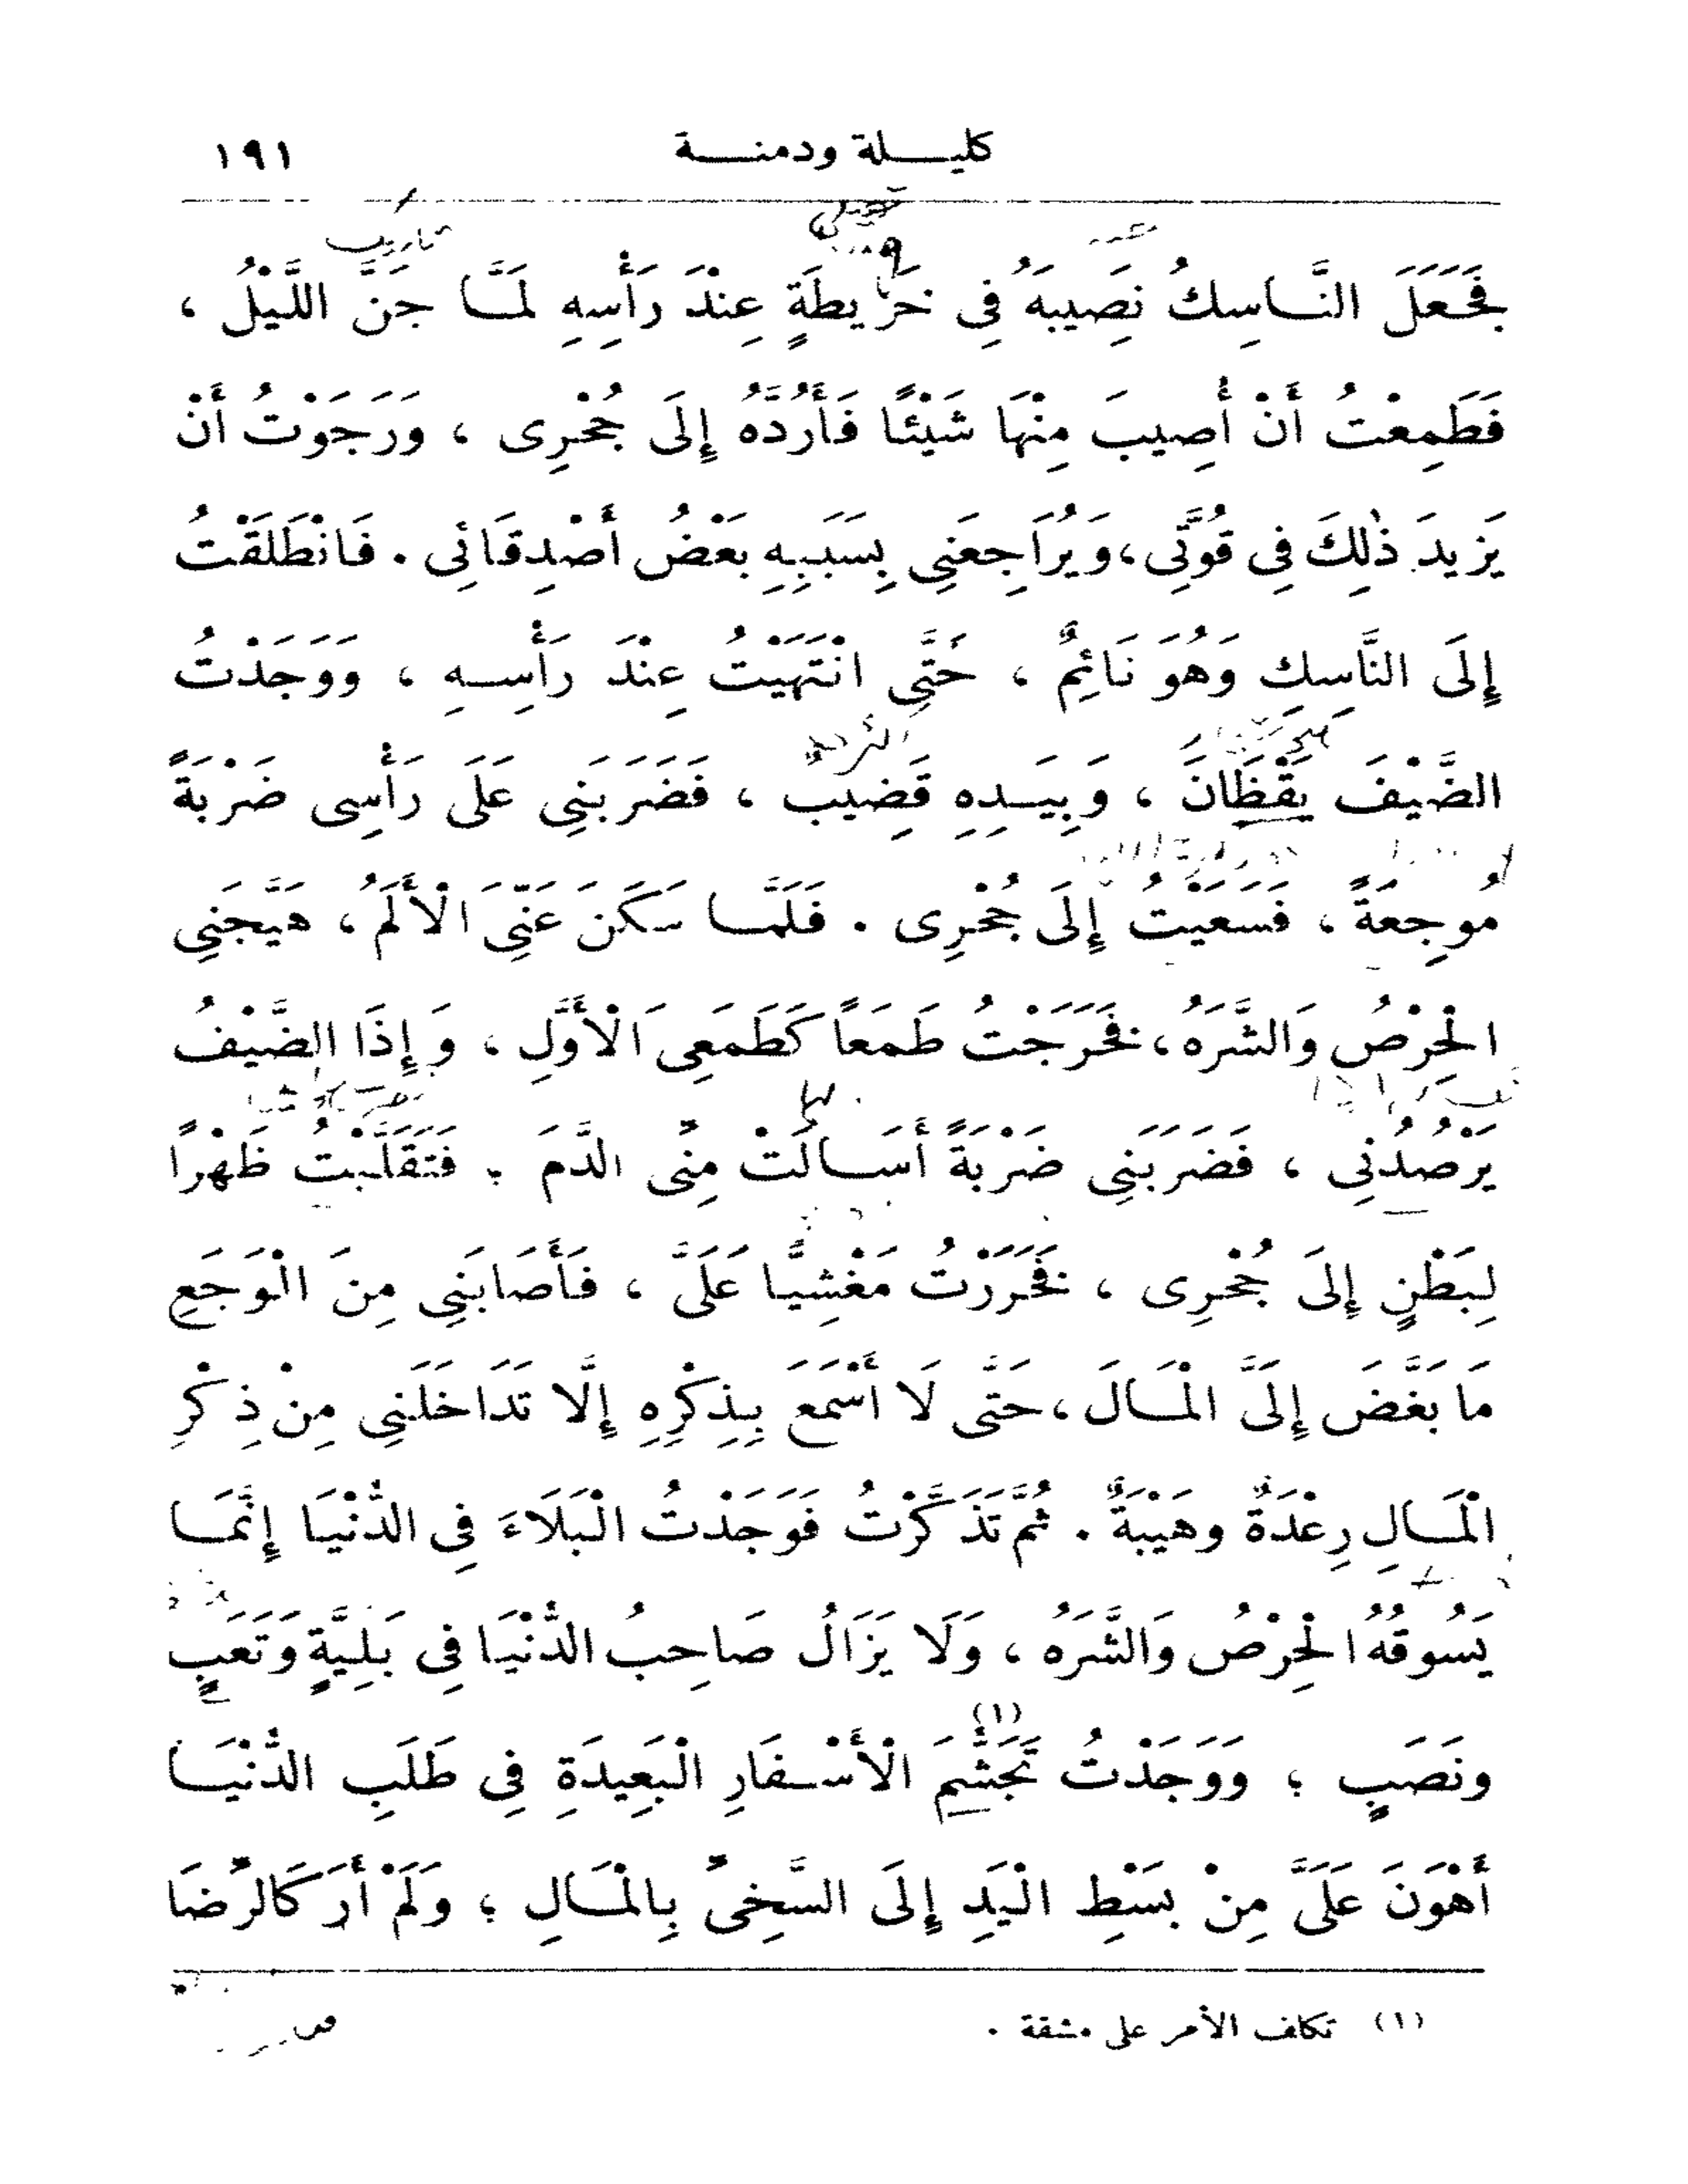 كليلة ودمنة ١٩١
فَجَعَلَ النَّاسِكُ نَصِيبَهُ فِى خَرِيطَةٍ عِنْدَ رَأْسِهِ لَمَّا جَنَّ اللَّيْلُ ،
فَطَمِعْتُ أَنْ أُصِيبَ مِنْهَا شَيْئًا فَأَرُدَّهُ إِلَى جُحْرِى ، وَرَجَوْتُ أَنْ
يَزِيدَ ذٰلِكَ فِى قُوَّتِى ، وَيُرَاجِعَنِى بِسَبَبِهِ بَعْضُ أَصْدِقَائِى . فَانْطَلَقْتُ
إِلَى النَّاسِكِ وَهُوَ نَائِمٌ ، حَتَّى انْتَهَيْتُ عِنْدَ رَأْسِهِ ، وَوَجَدْتُ
الضَّيْفَ يَقْظَانَ ، وَبِيَدِهِ قَضِيبٌ ، فَضَرَبَنِى عَلَى رَأْسِى ضَرْبَةً
مُوجِعَةً ، فَسَعَيْتُ إِلَى جُحْرِى . فَلَمَّا سَكَنَ عَنِّىَ الْأَلَمُ ، هَيَّجَنِى
الْحِرْصُ وَالشَّرَهُ ، فَخَرَجْتُ طَمَعًا كَطَمَعِىَ الْأَوَّلِ ، وَإِذَا الضَّيْفُ
يَرْصُدُنِى ، فَضَرَبَنِى ضَرْبَةً أَسَالَتْ مِنِّى الدَّمَ ؛ فَتَقَلَّبْتُ ظَهْرًا
لِبَطْنٍ إِلَى جُحْرِى ، فَخَرَرْتُ مَغْشِيًّا عَلَىَّ ، فَأَصَابَنِى مِنَ الْوَجَعِ
مَا بَغَّضَ إِلَىَّ الْمَالَ ، حَتَّى لَا أَسْمَعَ بِذِكْرِهِ إِلَّا تَدَاخَلَنِى مِنْ ذِكْرِ
الْمَالِ رِعْدَةٌ وهَيْبَةٌ . ثُمَّ تَذَكَّرْتُ فَوَجَدْتُ الْبَلَاءَ فِى الدُّنْيَا إِنَّمَا
يَسُوقُهُ الْحِرْصُ وَالشَّرَهُ ، وَلَا يَزَالُ صَاحِبُ الدُّنْيَا فِى بَلِيَّةٍ وَتَعَبٍ
ونَصَبٍ ؛ وَوَجَدْتُ تَجَشُّمَ (١) الْأَسْفَارِ الْبَعِيدَةِ فِى طَلَبِ الدُّنْيَا
أَهْوَنَ عَلَىَّ مِنْ بَسْطِ الْيَدِ إِلَى السَّخِىِّ بِالْمَالِ ؛ وَلَمْ أَرَ كَالرِّضَا
(١) تكلف الأمر على مشقة .